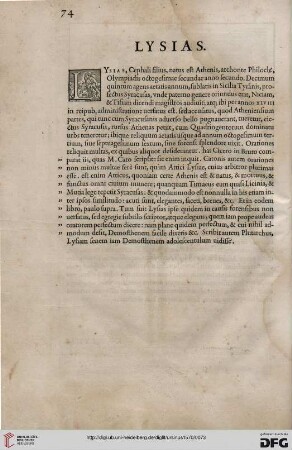 74
LYSIAS.
LYSIAS, Cephali filius, natus est Athenis, archonte Philocle,
Olympiadis octogesimæ secundæ anno secundo. Decimum
quintum agens ætatis annum, sublatis in Sicilia Tyrannis,
profectus Syracusas, unde paternum genere oriundus erat, Niciam,
& Tisiam dicendi magistros audiuit, atq; ibi per annos XLVIII
in
partes, qui tunc cum Syracusanis aduerso bello pugnarent, metuit, eie-
ctus Syracusis, rursus Athenas petiit, cum Quadringentorum dominatu
urbs teneretur. uixitq; in ciuitate usque ad annum octogesimum ter-
tium, siue septuagesimum sextum, splendore uitæ. Orationes
reliquit multas, ex quibus aliquot desiderantur. has Cicero in Bruto com-
parat iis, quas M. Cato scripsit: sic enim inquit. Catonis autem orationes
non minus multæ ferè sunt, quàm Attici Lysiæ, cuius arbitror plurimas
esse. est enim Atticus, quoniam certe Athenis est & natus, & mortuus, &
functus omni ciuium munere; quanquam Timæus eum quasi Licinia, &
Mutia lege repetit Syracusas. & quodammodo est nonnulla in his etiam in-
ter ipsos similitudo: acuti sunt, elegantes, faceti, breues, &c. Et in eodem
libro, paulo supra. Tum fuit Lysias ipse quidem in causis forensibus non
uersatus, sed egregie subtilis scriptor, atque elegans, quem iam prope audeas
oratorem perfectum dicere: nam plane quidem perfectum, & cui nihil ad-
modum desit, Demosthenem facile dixeris &c. Scribit autem Plutarchus,
Lysiam senem iam Demosthenem adolescentulum uidisse.
http://digi.ub.uni-heidelberg.de/diglit/
UNIVERSITÄTS-
BIBLIOTHEK
HEIDELBERG
Gefördert durch
DFG